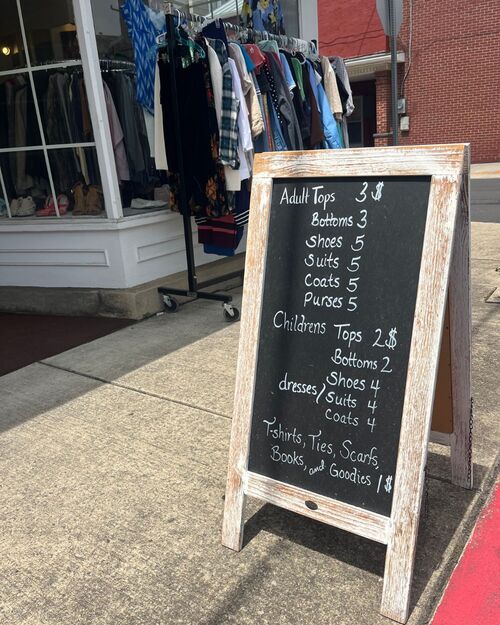 Adult Tops 3$
Bottoms 3
Shoes 5
Suits 5
Coats 5
Purses 5
Childrens Tops 2$
Bottoms 2
Shoes 4
dresses/Suits 4
Coats 4
T-shirts, Ties, Scarfs,
Books, and Goodies 1$